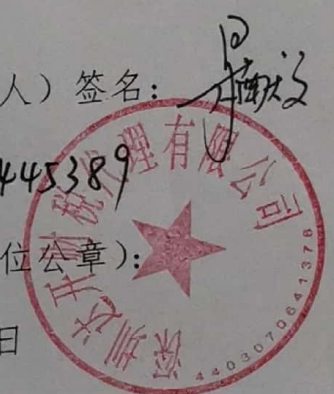 人）签名：
445389
位公章）：
日
深圳达开财税代理有限公司
4403070641378